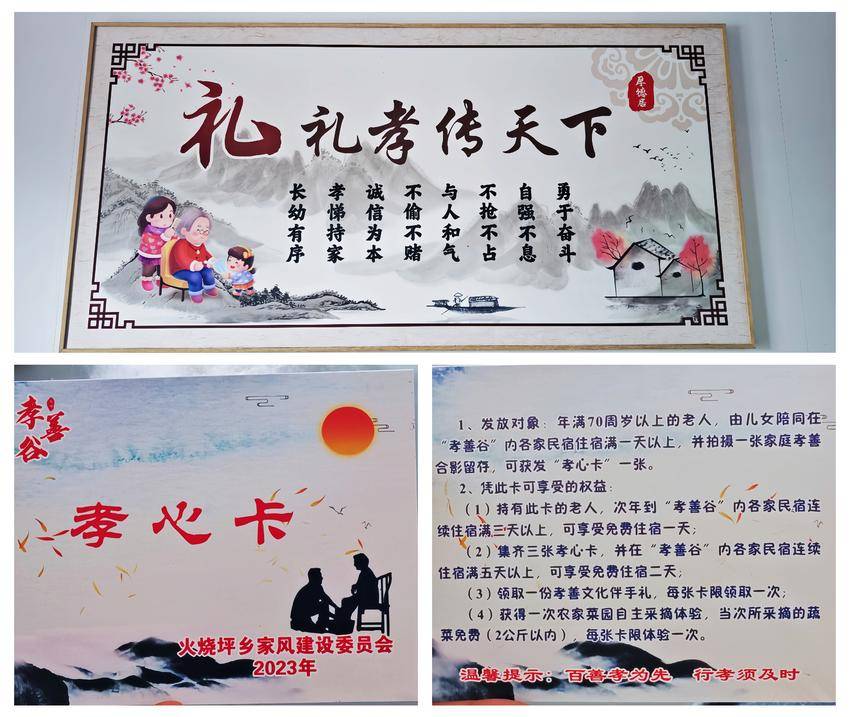 礼 礼孝传天下
厚德居
长幼有序
孝悌持家
诚信为本
不偷不赌
与人和气
不抢不占
自强不息
勇于奋斗
孝善谷
孝心卡
火烧坪乡家风建设委员会
2023年
1、发放对象：年满70周岁以上的老人，由儿女陪同在
“孝善谷”内各家民宿住宿满一天以上，并拍摄一张家庭孝善
合影留存，可获发“孝心卡”一张。
2、凭此卡可享受的权益：
（1）持有此卡的老人，次年到“孝善谷”内各家民宿连
续住宿满三天以上，可享受免费住宿一天；
（2）集齐三张孝心卡，并在“孝善谷”内各家民宿连续
住宿满五天以上，可享受免费住宿二天；
（3）领取一份孝善文化伴手礼，每张卡限领取一次；
（4）获得一次农家菜园自主采摘体验，当次所采摘的蔬
菜免费（2公斤以内），每张卡限体验一次。
温馨提示：百善孝为先 行孝须及时